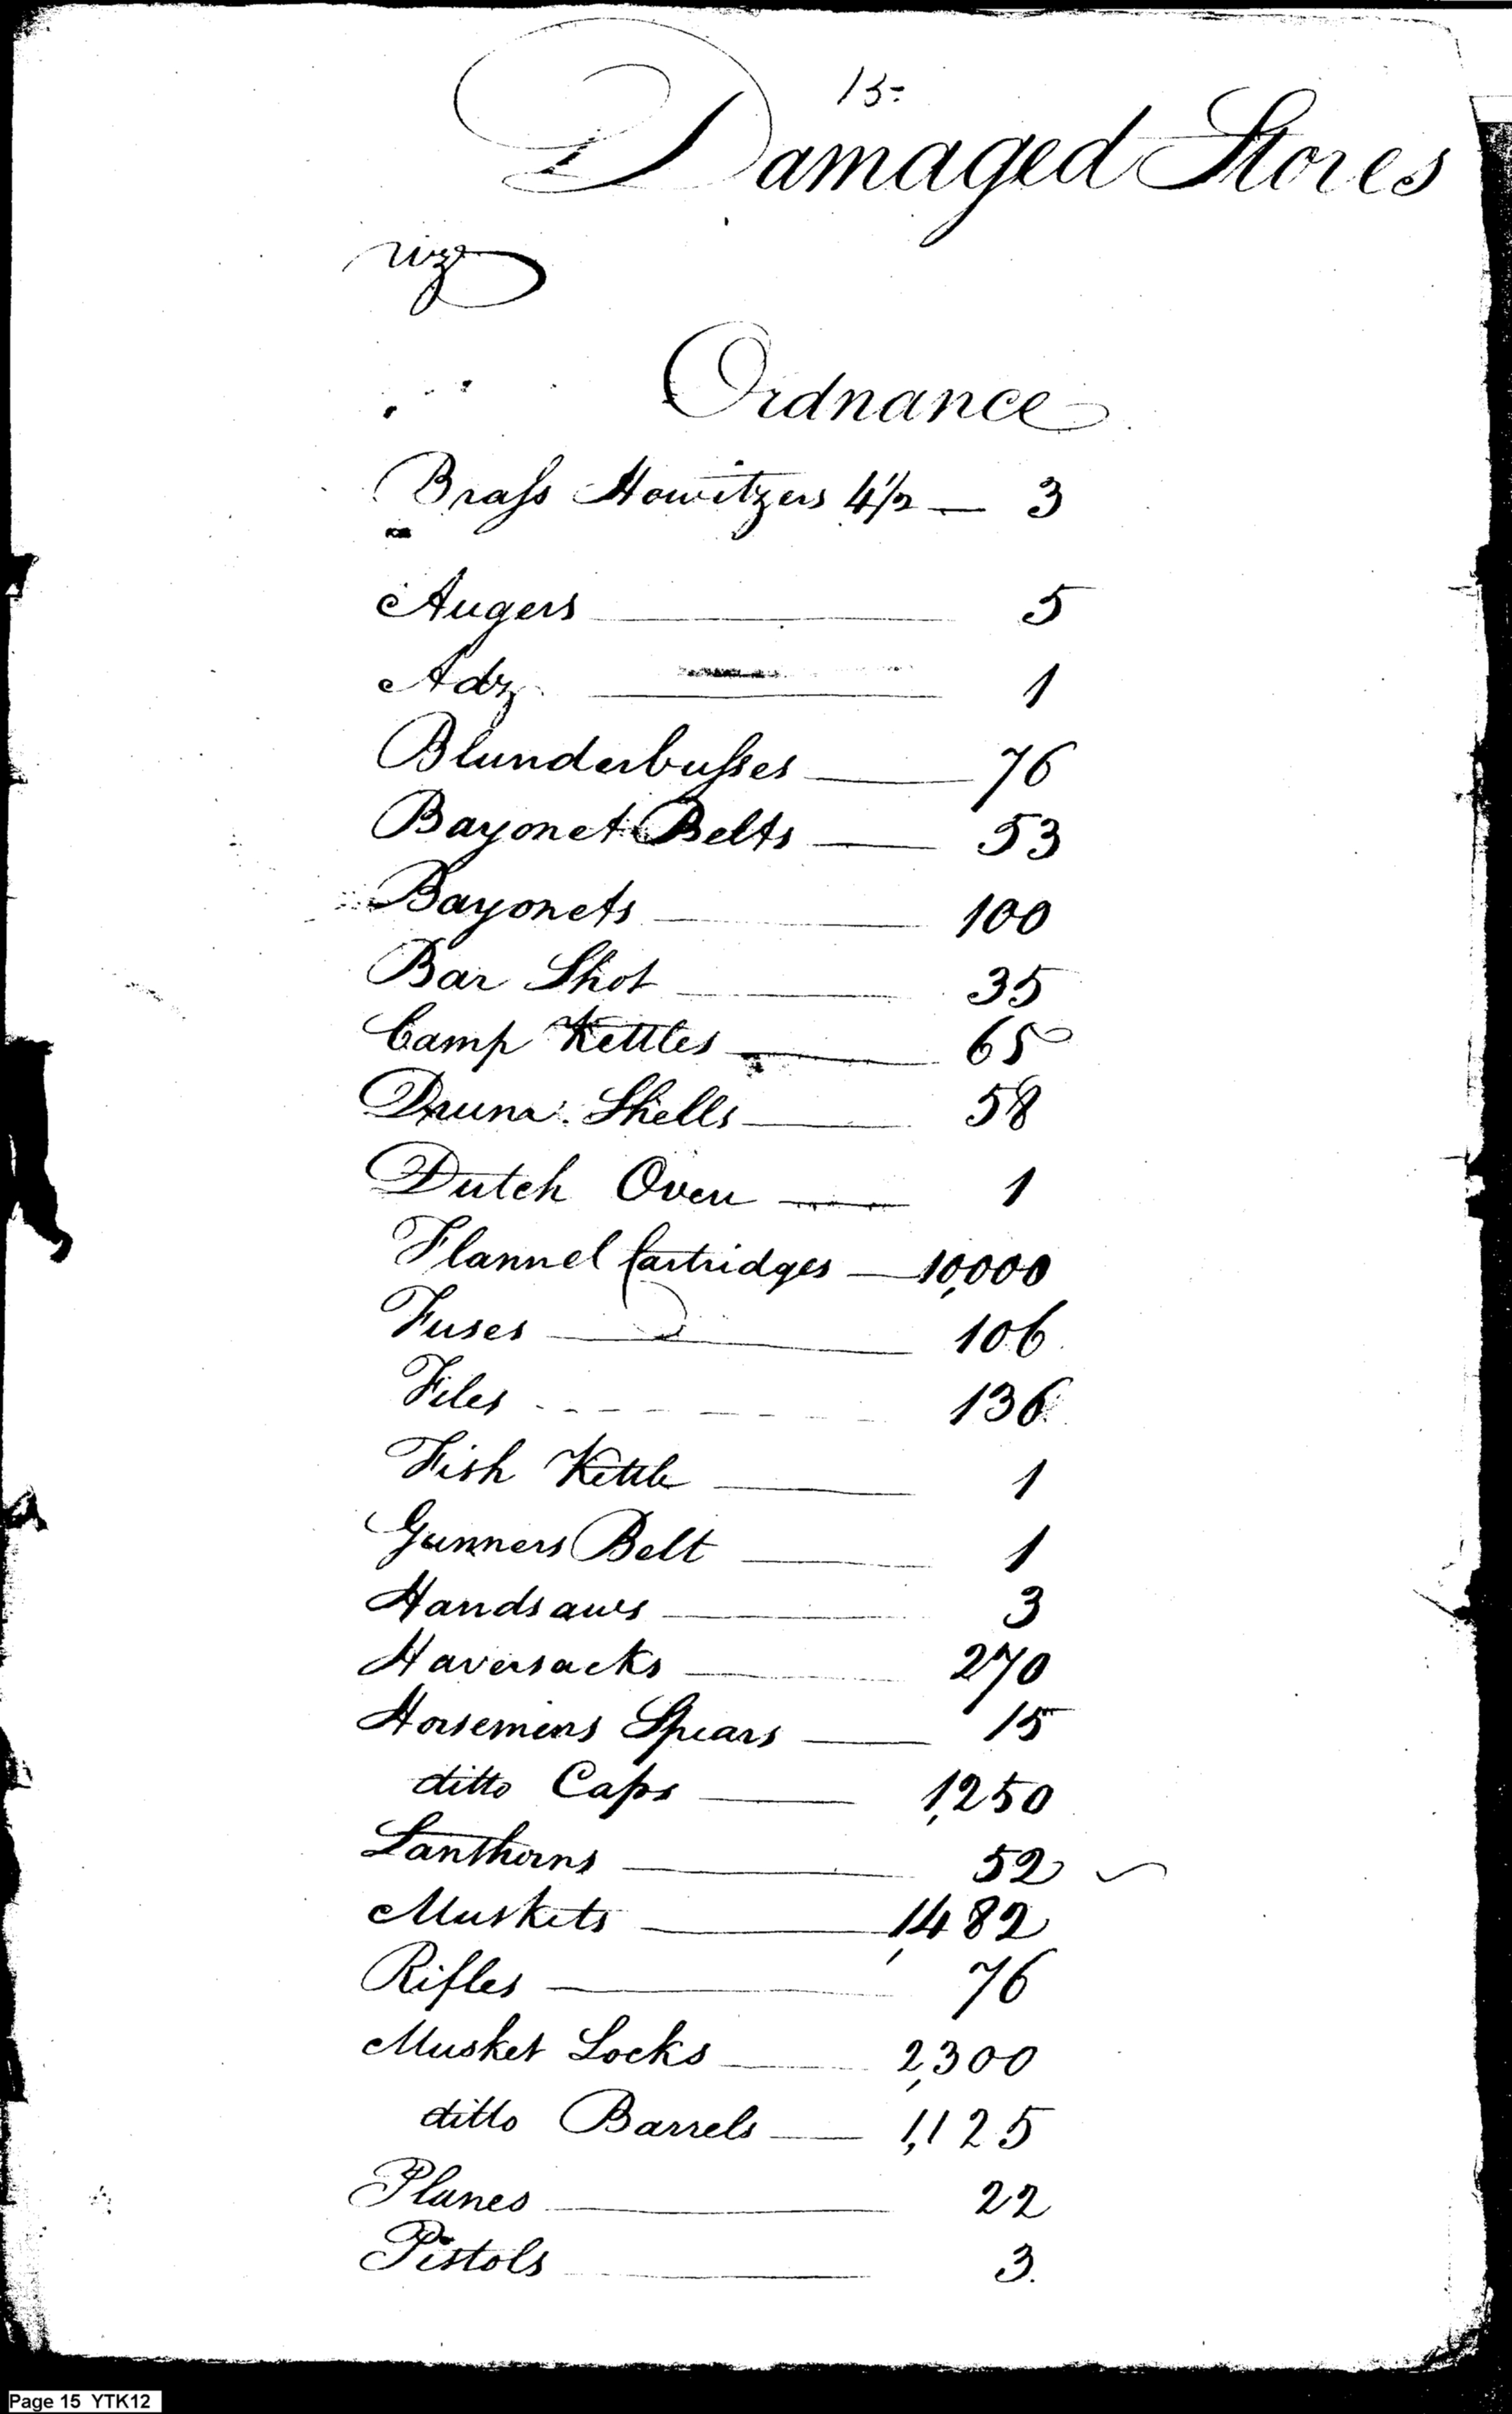 15=
Damaged Stores
viz
Ordnance
Braſs Howitzers 4½ — 3
Augers — 5
Adz — 1
Blunderbuſses — 76
Bayonet Belts — 53
Bayonets — 100
Bar Shot — 35
Camp Kettles — 65
Drum Shells — 58
Dutch Oven — 1
Flannel Cartridges — 10,000
Fuses — 106
Files - - - - - - 136
Fish Kettle — 1
Gunners Belt — 1
Handsaws — 3
Haversacks — 270
Horsemens Spears — 15
ditto Caps — 1,250
Lanthorns — 52
Muskets — 1,482
Rifles — 76
Musket Locks — 2,300
ditto Barrels — 1,125
Planes — 22
Pistols — 3.
Page 15 YTK12